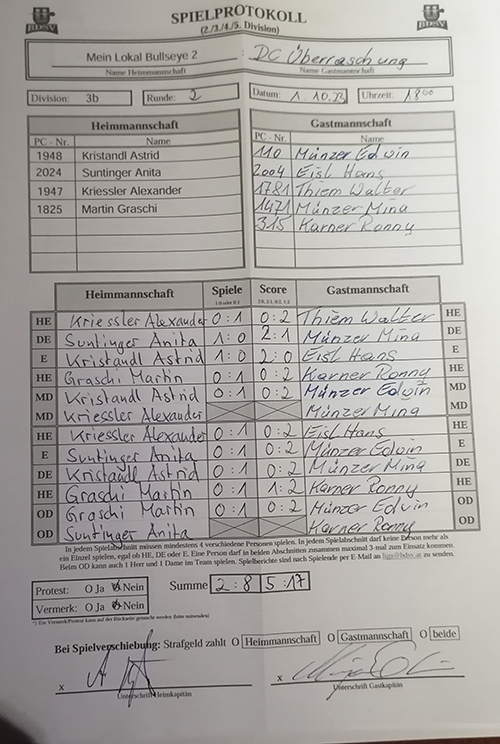 BDSV SPIELPROTOKOLL BDSV
(2./3./4./5. Division)
Mein Lokal Bullseye 2 : DC Überraschung
Name Heimmannschaft Name Gastmannschaft
Division: 3b Runde: 2 Datum: 1 10.23 Uhrzeit: 18⁰⁰
Heimmannschaft Gastmannschaft
PC - Nr. Name PC - Nr. Name
1948 Kristandl Astrid 110 Münzer Edwin
2024 Suntinger Anita 2004 Eisl Hans
1947 Kriessler Alexander 1781 Thiem Walter
1825 Martin Graschi 1471 Münzer Mina
315 Karner Ronny
Heimmannschaft Spiele Score Gastmannschaft
1:0 oder 0:1 2:0, 2:1, 0:2, 1:2
HE Kriessler Alexander 0:1 0:2 Thiem Walter HE
DE Suntinger Anita 1:0 2:1 Münzer Mina DE
E Kristandl Astrid 1:0 2:0 Eisl Hans E
HE Graschi Martin 0:1 0:2 Karner Ronny HE
MD Kristandl Astrid 0:1 0:2 Münzer Edwin MD
MD Kriessler Alexander Münzer Mina MD
HE Kriessler Alexander 0:1 0:2 Eisl Hans HE
E Suntinger Anita 0:1 0:2 Münzer Edwin E
DE Kristandl Astrid 0:1 0:2 Münzer Mina DE
HE Graschi Martin 0:1 1:2 Karner Ronny HE
OD Graschi Martin 0:1 0:2 Münzer Edwin OD
OD Suntinger Anita Karner Ronny OD
In jedem Spielabschnitt müssen mindestens 4 verschiedene Personen spielen. In jedem Spielabschnitt darf keine Person mehr als
ein Einzel spielen, egal ob HE, DE oder E. Eine Person darf in beiden Abschnitten zusammen maximal 3-mal zum Einsatz kommen.
Beim OD kann auch 1 Herr und 1 Dame im Team spielen. Spielberichte sind nach Spielende per E-Mail an liga@bdsv.at zu senden.
Protest: O Ja O Nein Summe 2:8 5:17
Vermerk: O Ja O Nein
*) Ein Vermerk/Protest kann auf der Rückseite gemacht werden (bitte ankreuzen)
Bei Spielverschiebung: Strafgeld zahlt O Heimmannschaft O Gastmannschaft O beide
x x
Unterschrift Heimkapitän Unterschrift Gastkapitän